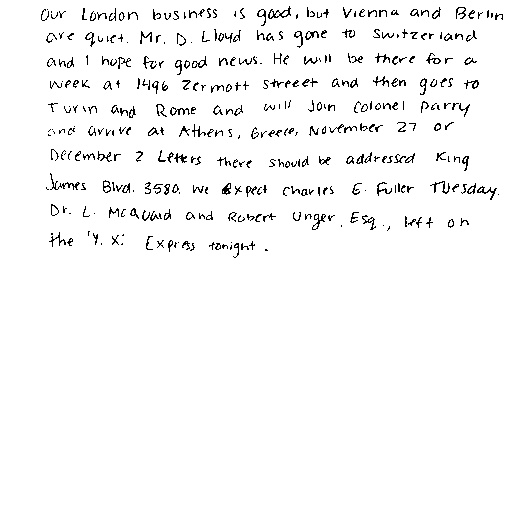 Our London business is good, but Vienna and Berlin
are quiet. Mr. D. Lloyd has gone to Switzerland
and I hope for good news. He will be there for a
week at 1496 Zermott streeet and then goes to
Turin and Rome and will join Colonel Parry
and arrive at Athens, Greece, November 27 or
December 2 Letters there should be addressed King
James Blvd. 3580. We expect Charles E. Fuller Tuesday.
Dr. L. McQuaid and Robert Unger, Esq., left on
the "Y. X." Express tonight.